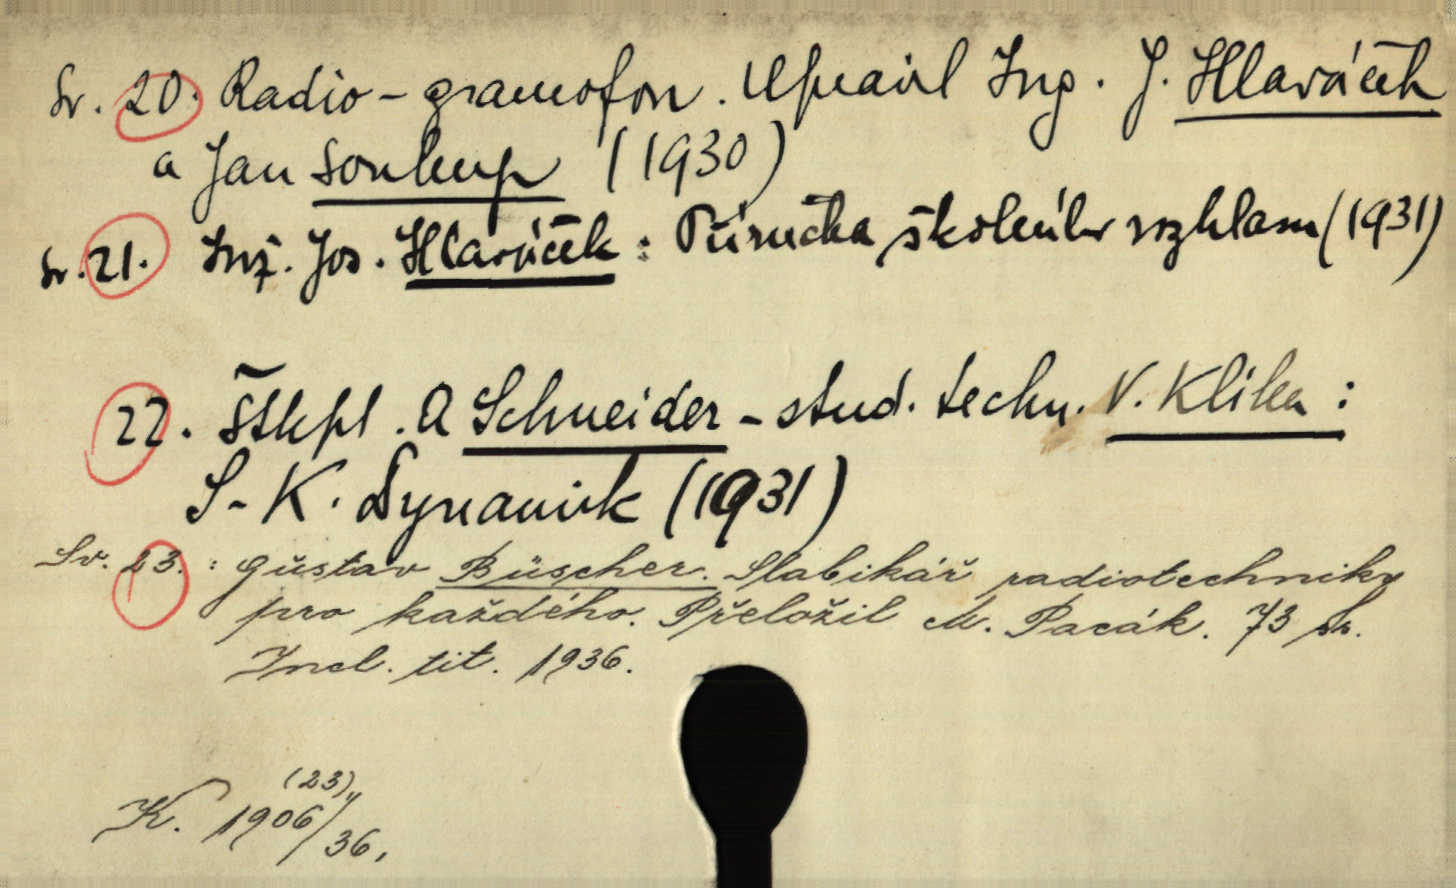 Sv. 20. Radio-gramofon. Upravil Ing. J. Hlaváček
a Jan Soukup (1930)
Sv. 21. Inž. Jos. Hlaváček: Příručka školního rozhlasu (1931)
22. Štkpt. A Schneider - stud. techn. V. Klika:
S-K. Dynamik (1931)
Sv. 23.: Gustav Büscher. Slabikář radiotechniky
pro každého. Přeložil M. Pacák. 73 str.
Incl. tit. 1936.
(23),
K. 1906/36,